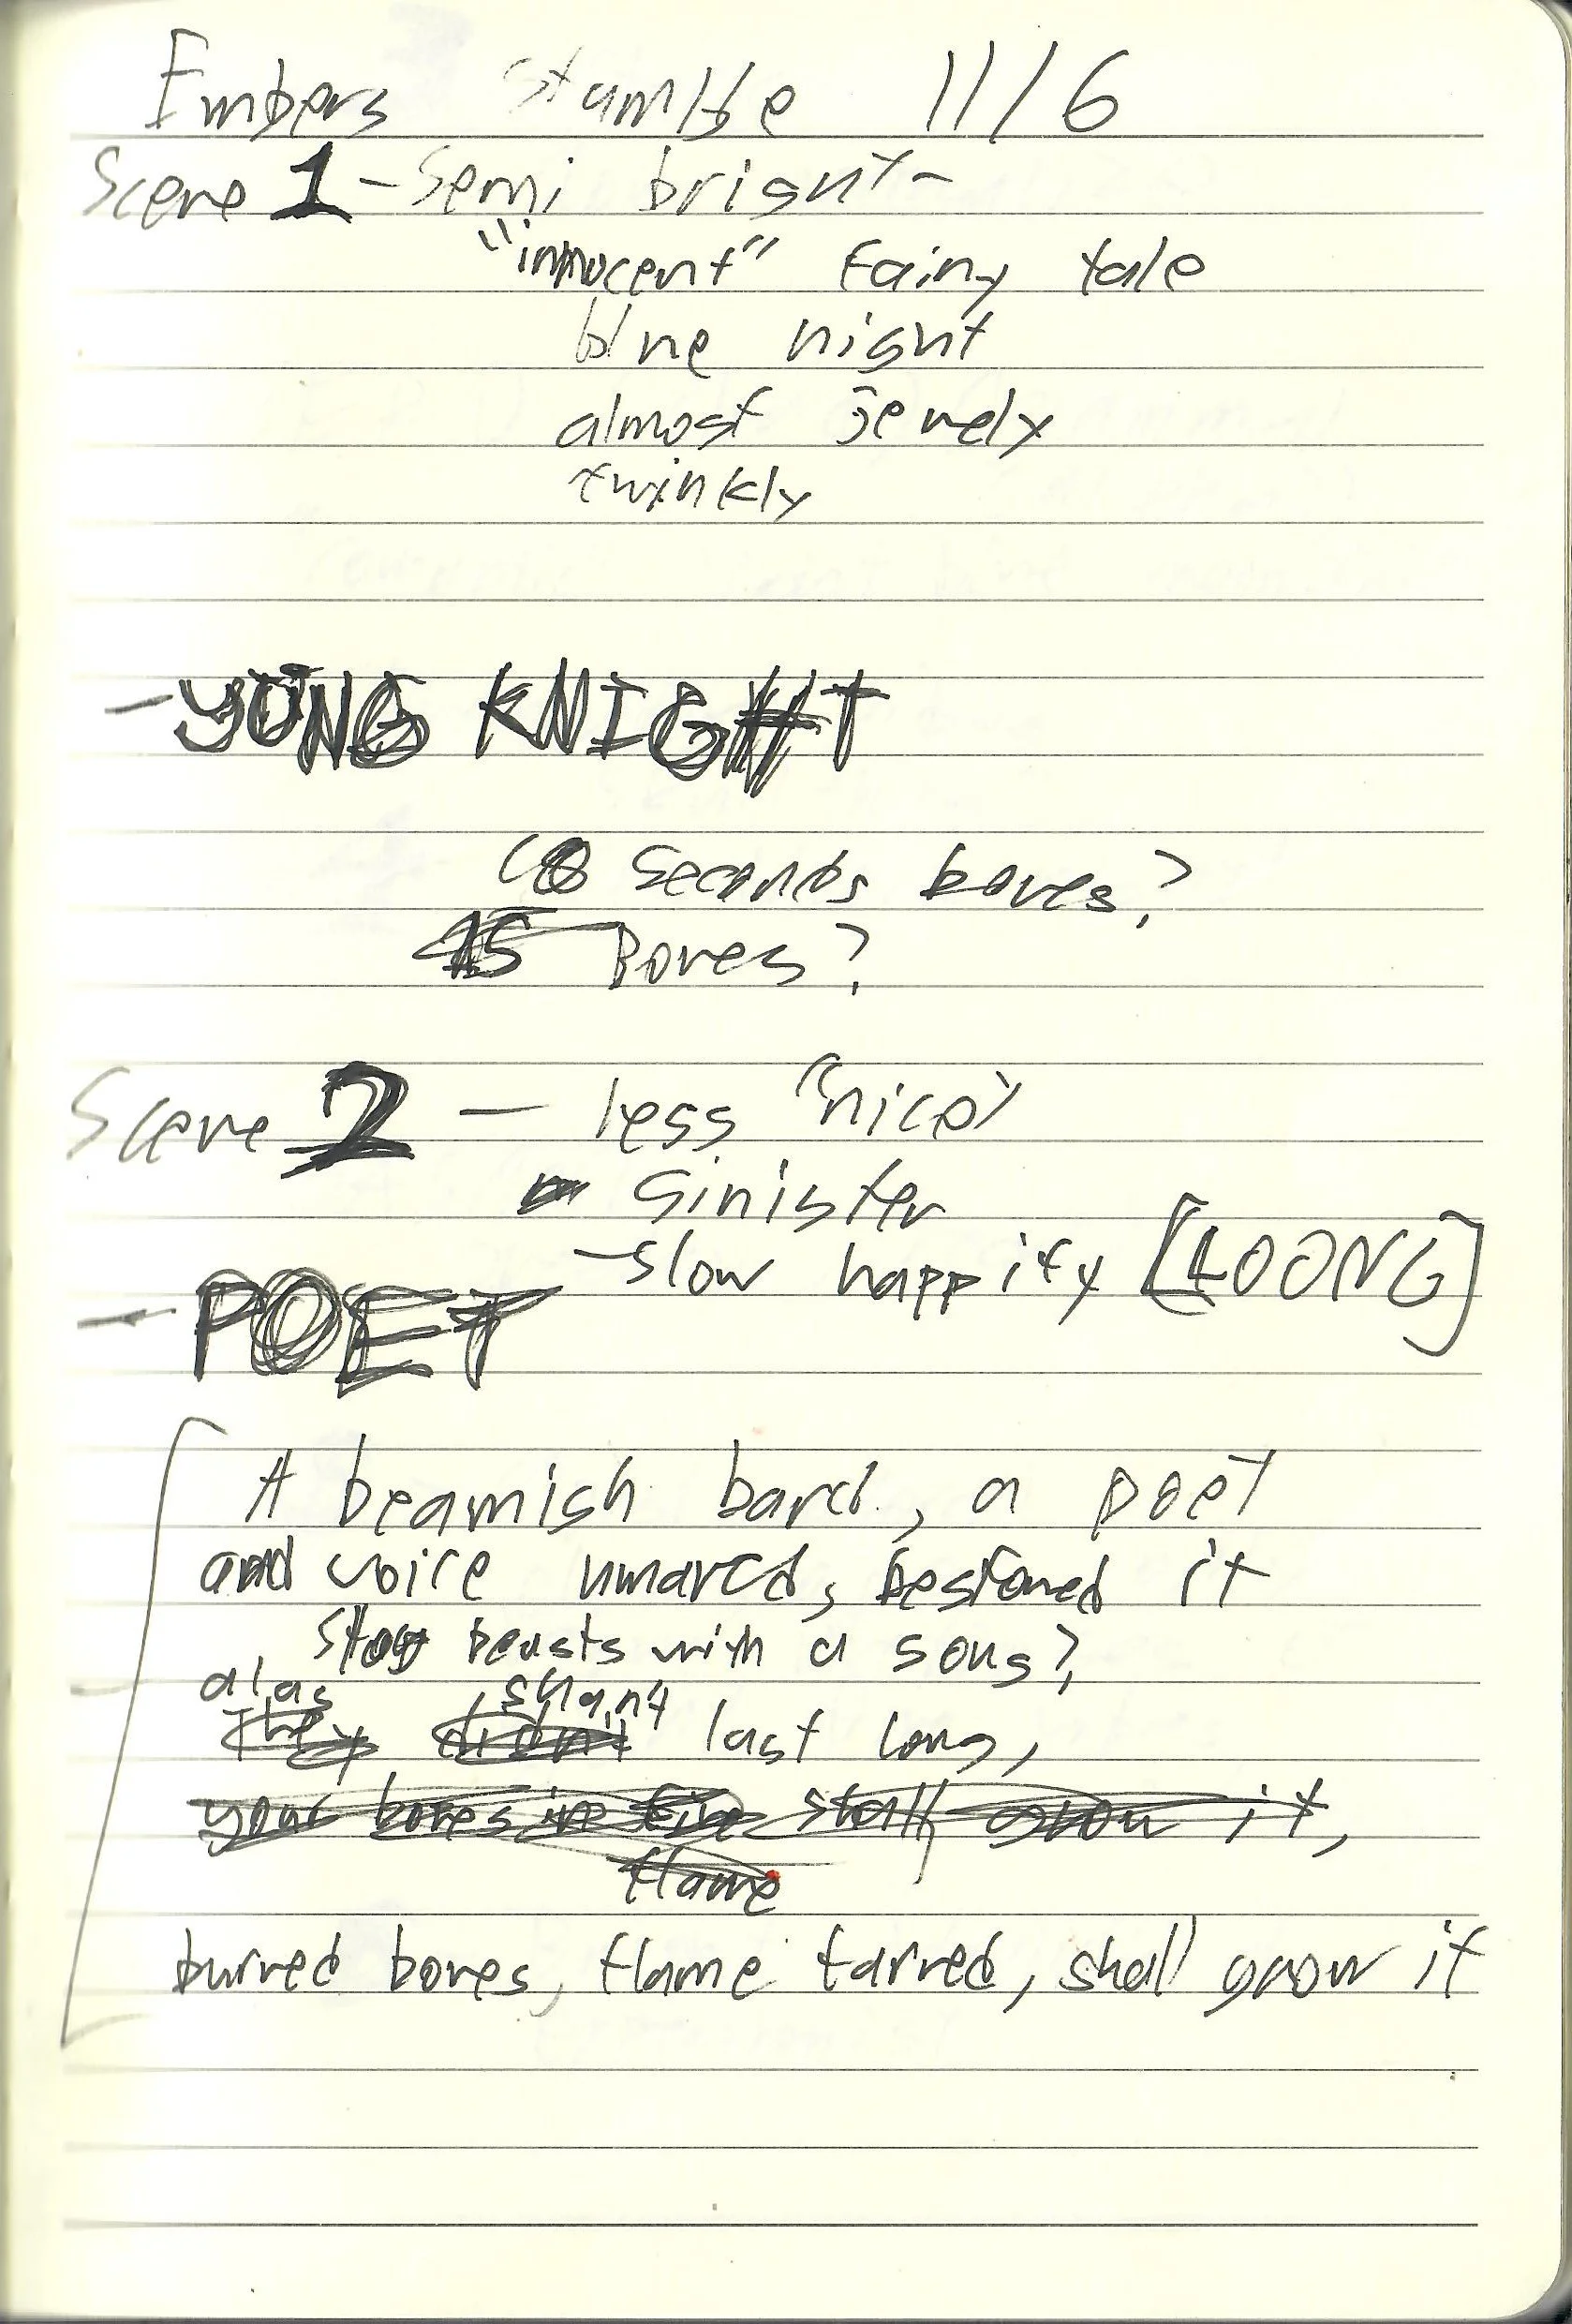 Embers stumble 11/6
Scene 1 - Semi bright -
"innocent" fairy tale
blue night
almost jewely
twinkly
- YOUNG KNIGHT
seconds bones?
45 Bones?
Scene 2 - less "nice"
- sinister
- slow happity [LOONG]
- POET
A beamish bard, a poet
and voice unmarred, bestowed it
slay beasts with a song?
alas, shan't
They didn't last long,
your bones in fire shall grow it,
flame
burned bones, flame tarred, shall grow it